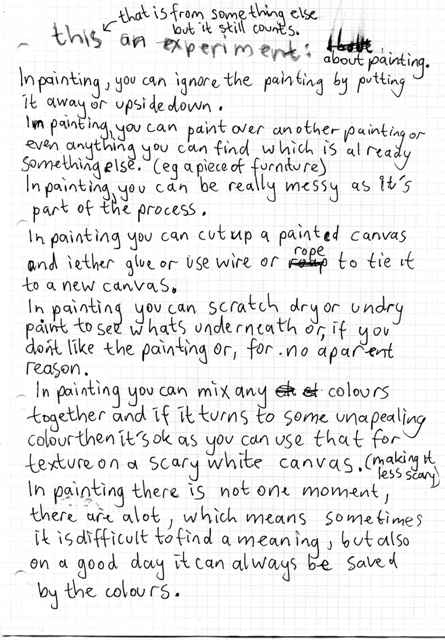 that is from something else
but it still counts.
this an experiment:
about painting.
In painting, you can ignore the painting by putting
it away or upside down.
In painting, you can paint over another painting or
even anything you can find which is already
something else. (eg a piece of furniture)
In painting, you can be really messy as it's
part of the process.
In painting you can cut up a painted canvas
and iether glue or use wire or rope to tie it
to a new canvas.
In painting you can scratch dry or undry
paint to see whats underneath or, if you
don't like the painting or, for no aparent
reason.
In painting you can mix any colours
together and if it turns to some unapealing
colour then it's ok as you can use that for
texture on a scary white canvas. (making it
less scary)
In painting there is not one moment,
there are alot, which means sometimes
it is difficult to find a meaning, but also
on a good day it can always be saved
by the colours.